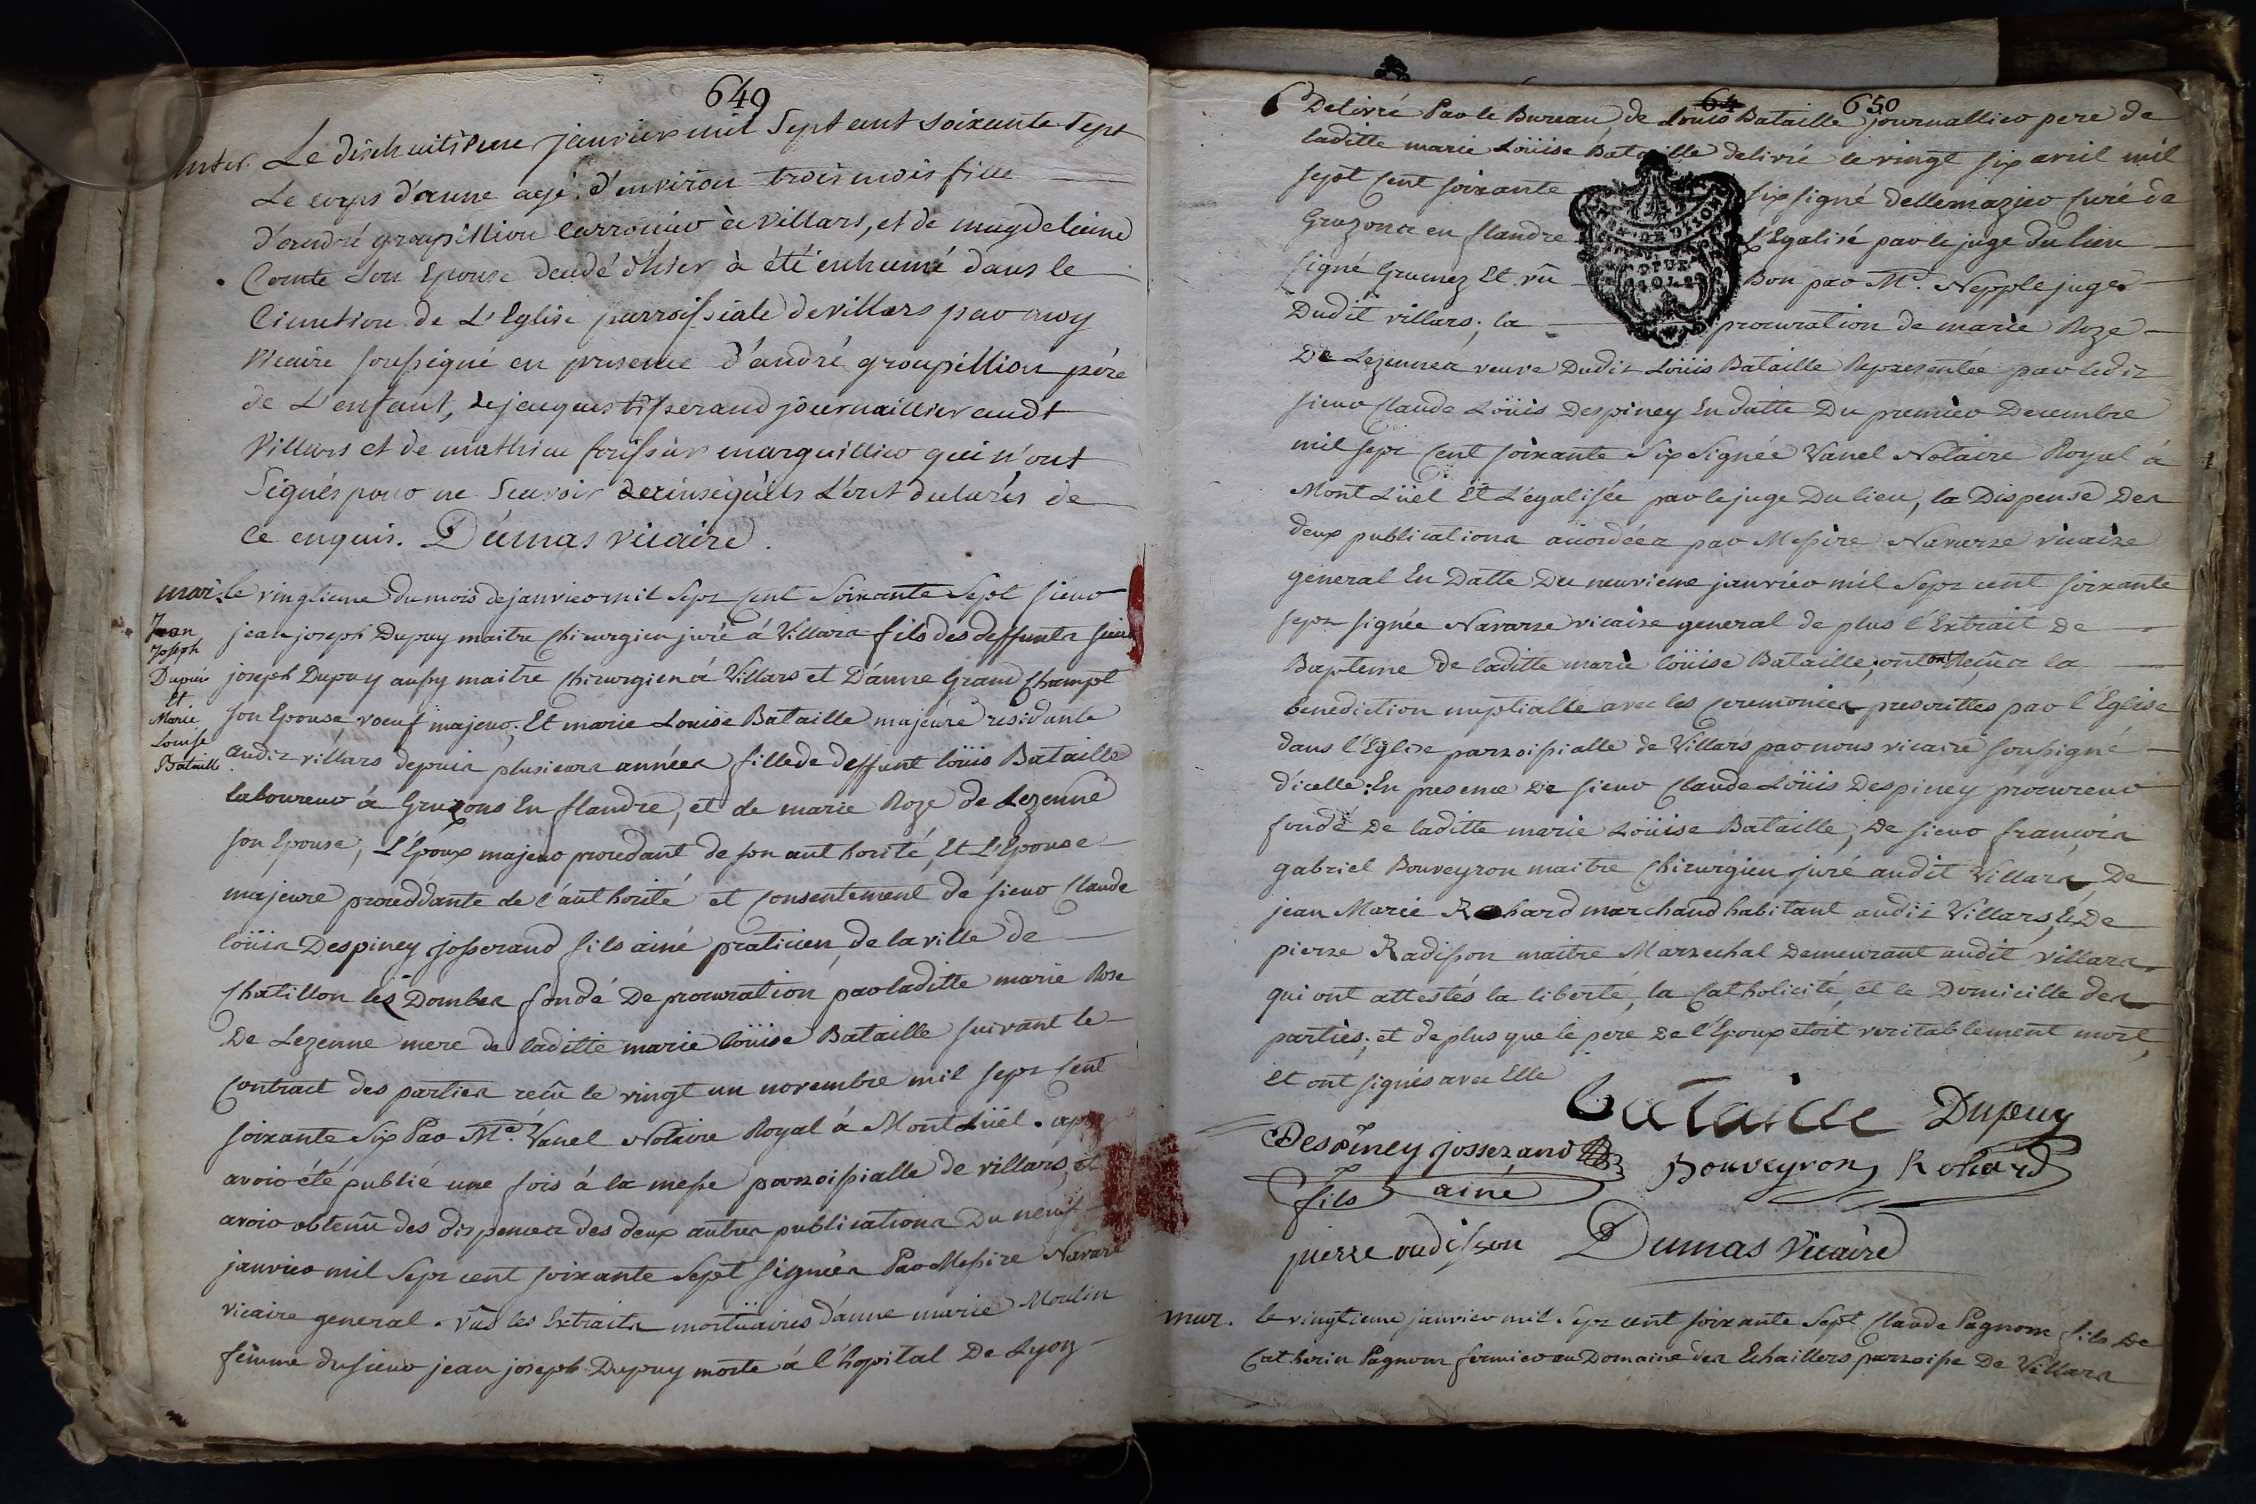 649
inter. Le dixhuitieme janvier mil sept cent soixante sept
Le corps d'anne agé d'environ trois mois fille
d'andré groupillion à villars, et de magdeleine
Comte son Epouse décedé d'hier à été enhumé dans le
Cimetiere de L'Eglise parroissiale de villars par moy
vicaire soussigné en presence d'andré groupillion pére
de L'enfant, de jacques tisserand journaillier audt
villars et de mathieu marguillier qui n'ont
signés pour ne sçavoir L'ont de
ce enquis. Dumas vicaire.
mar. le vingtieme du mois de janvier mil sept cent soixante sept sieur
Jean Joseph Dupuis et Marie Louise Bataille
jean joseph Dupuy maitre chirurgien juré à Villars fils des deffunts sieur
joseph Dupuy aussy maitre chirurgien à Villars et D'anne Grand Champt
son Epouse voeuf majeur, Et marie Louise Bataille majeure residante
audit villars depuis plusieurs années fille de deffunt Loüis Bataille
laboureur à Gruzons En flandre, et de marie Roze de Lezenne
son Epouse; L'Epoux majeur procedant de son authorité, Et L'Epouse
majeure proceddante de l'authorité et consentement de sieur Claude
Loüis Despiney josserand fils ainé praticien de la ville de
Chatillon les Dombes fondé De procuration par laditte marie Rose
De Lezenne mere de laditte marie Loüise Bataille suivant le
Contract des parties reçû le vingt un novembre mil sept cent
soixante Six Par Me. Vanel Notaire Royal à Mont Lüel.
avoir été publié une fois à la messe parroissialle de villars, et
avoir obtenû des dispences des deux autres publications Du neuf
janvier mil sept cent soixante sept signées Par Messire Navarre
vicaire general. vûs les Extraits mortüaires d'anne marie Moulin
femme du sieur jean joseph Dupuy morte à l'hopital De Lyon
64 650
Delivré Par le Bureau, de Louis Bataille journallier pere de
laditte marie Loüise Bataille delivré le vingt six avril mil
sept cent soixante six signé dellemazier Curé de
Gruzons en flandre L'Egalisé par le juge du lieu
signé Grumez Et vû Bon par Mr. Nepple juge
Dudit villars; la procuration de marie Roze
De Lezennes veuve Dudit Loüis Bataille Representée par ledit
sieur Claude Loüis Despiney En datte Du premier Decembre
mil sept cent soixante Six Signée Vanel Notaire Royal à
Mont Lüel Et L'égalisée par le juge Du lieu, la Dispense Des
deux publications accordées par Messire Navarre vicaire
general En Datte Du neuvieme janvier mil sept cent soixante
sept signée Navarre vicaire general de plus l'Extrait De
Bapteme de laditte marie Loüise Bataille, ont reçûs la
benediction nuptialle avec les ceremonies prescrittes par l'Eglise
dans l'Eglise parroissialle de Villars par nous vicaire soussigné
d'icelle; En presence De sieur Claude Loüis Despiney procureur
fondé De laditte marie Loüise Bataille, De sieur françois
gabriel Bouveyron maitre Chirurgien juré audit Villars, De
jean Marie Rohard marchand habitant audit Villars, Et De
pierre Radisson maitre Marrechal Demeurant audit villars
qui ont attestés la liberté, la Catholicité et le Domicille des
parties; et de plus que le pere De l'Epoux etoit veritablement mort,
Et ont signés avec Elle
Bataille Dupuy
Despiney josserand Bouveyron Rohard
fils ainé
pierre radisson Dumas vicaire
mar. le vingtieme janvier mil sept cent soixante sept Claude Pagnon fils De
Catherin Pagnon fermier au Domaine des Echaillers parroisse De Villars